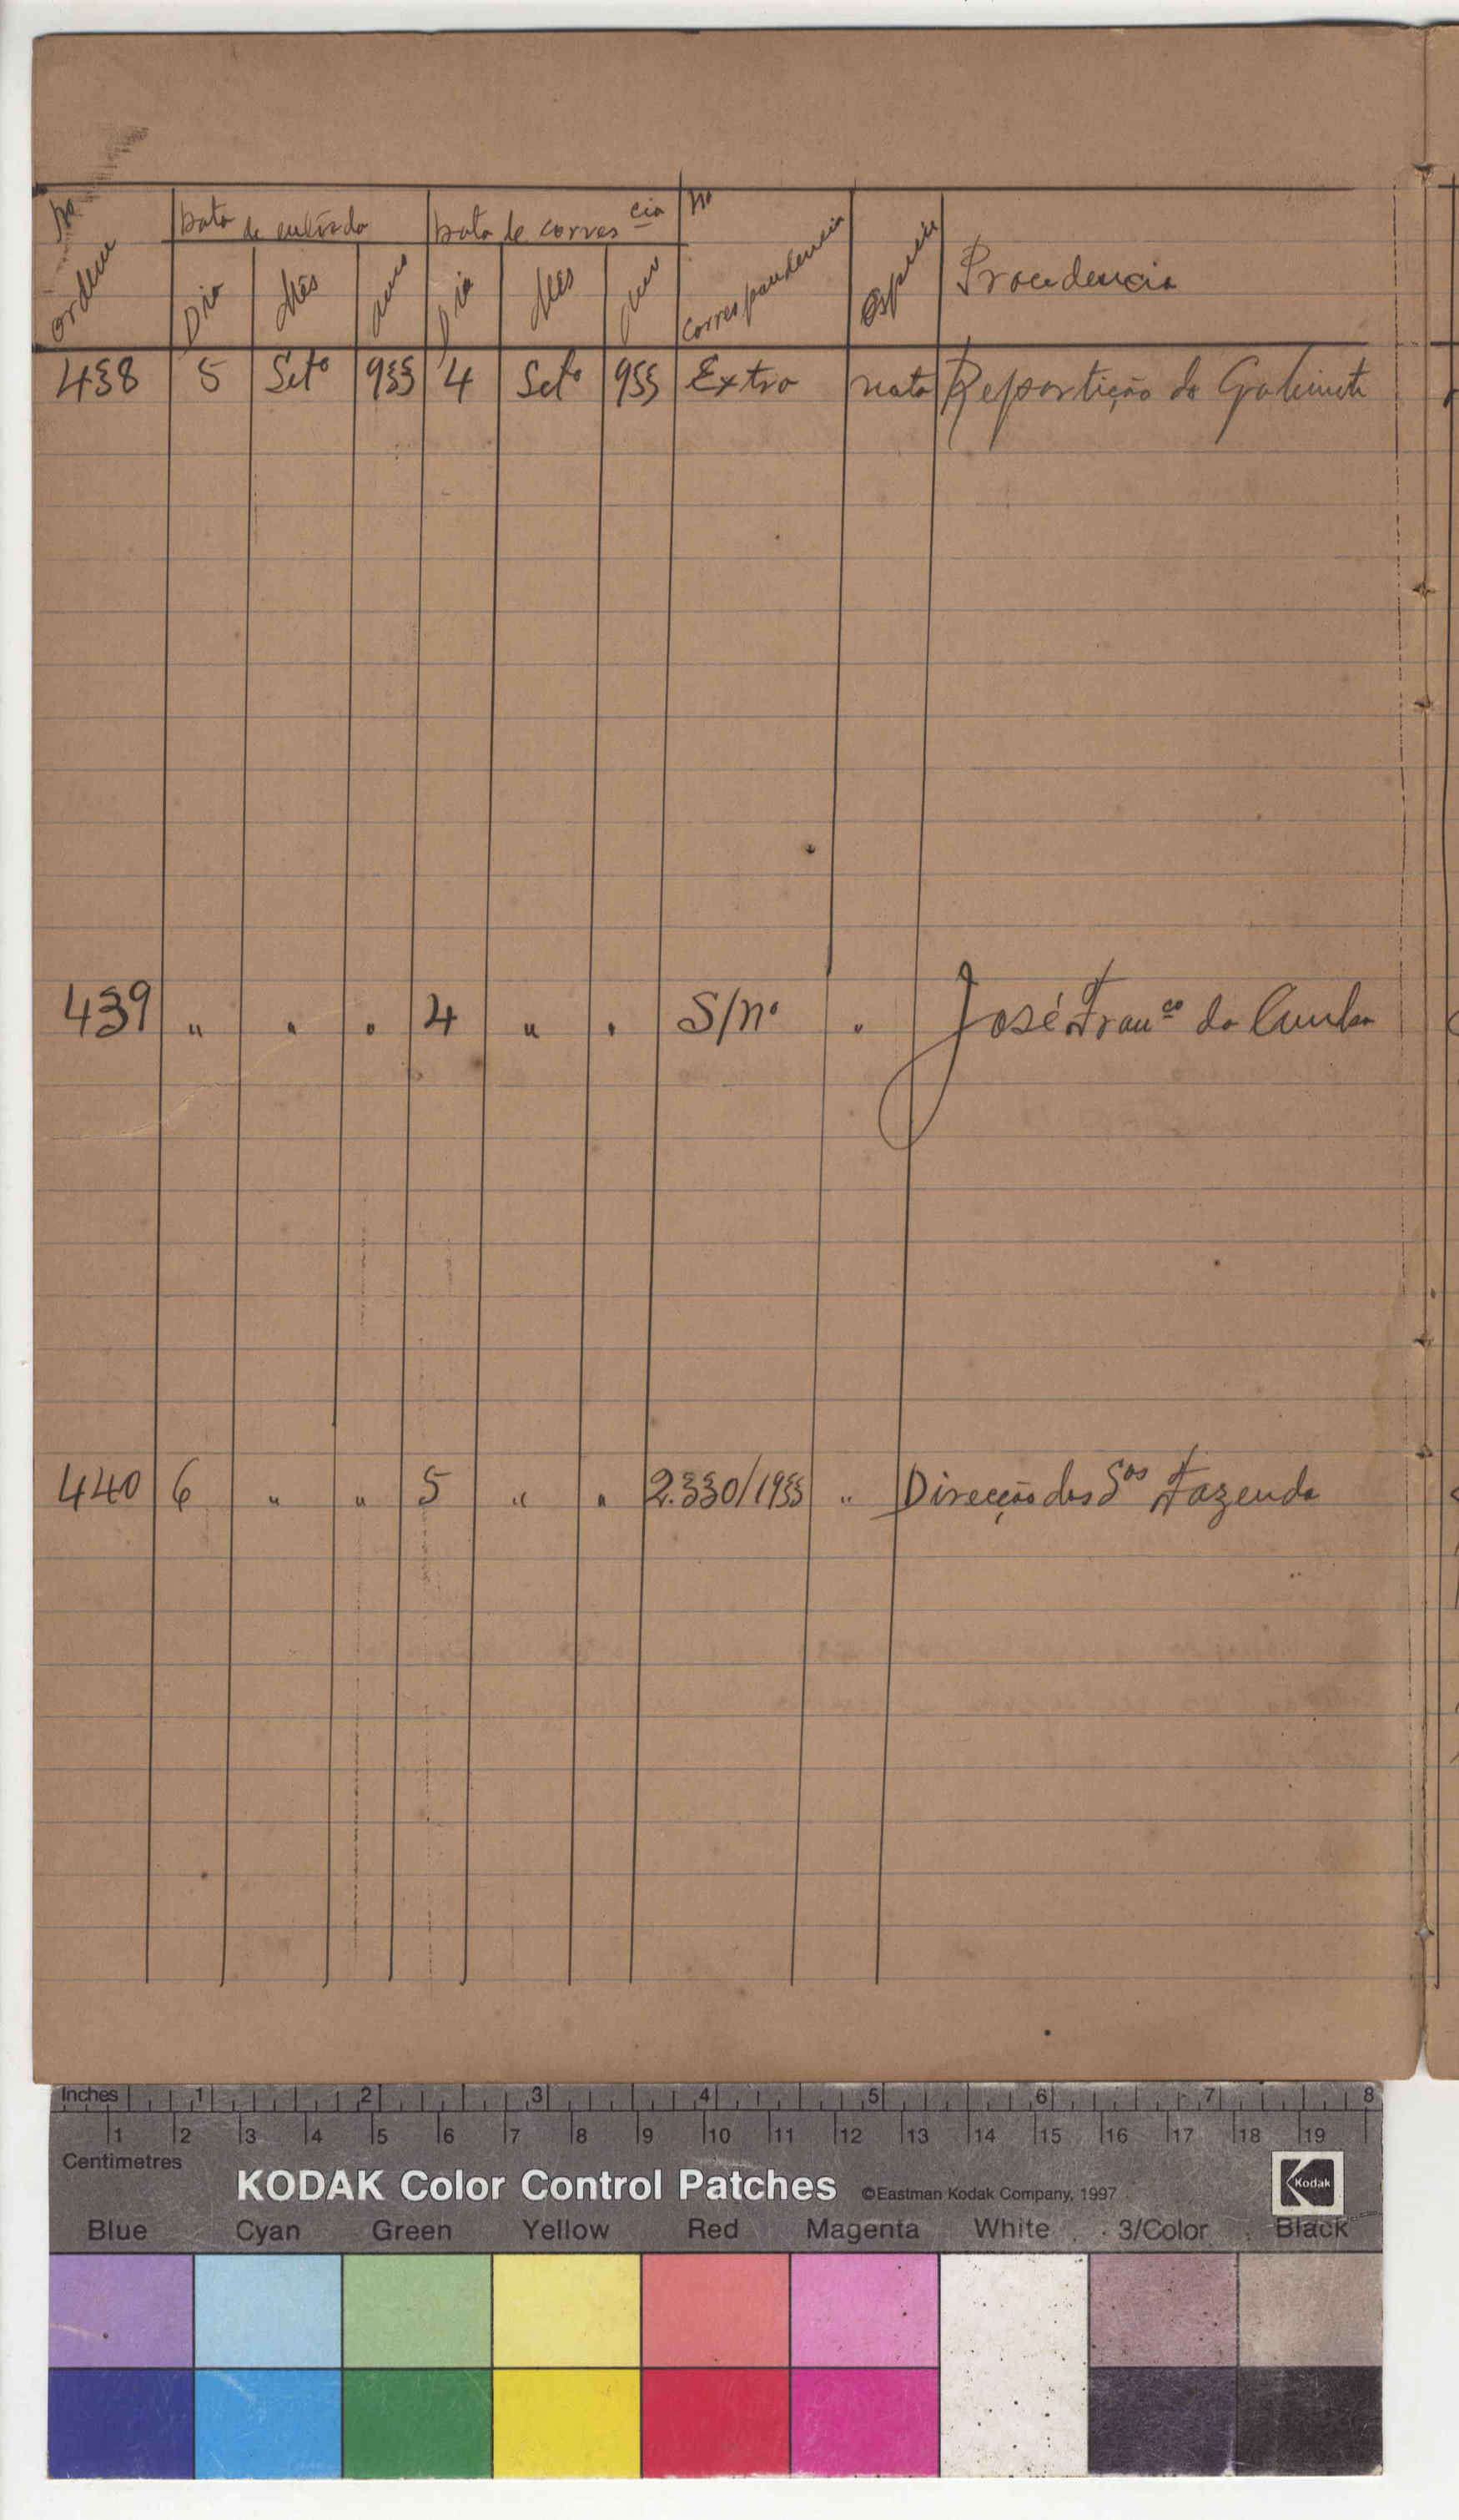 Nº ordem Data de entrada Data de corres cia Nº correspondencia Especie Procedencia
Dia Mês ano Dia Mês ano
438 5 Setº 955 4 Setº 955 Extra nota Repartição do Gabinete
439 " " " 4 " " S/nº " José Franco da Cunha
440 6 " " 5 " " 2.330/1955 " Direcção dos Sos Fazenda
Inches 1 2 3 4 5 6 7 8
1 2 3 4 5 6 7 8 9 10 11 12 13 14 15 16 17 18 19
Centimetres
KODAK Color Control Patches ©Eastman Kodak Company, 1997 Kodak
Blue Cyan Green Yellow Red Magenta White 3/Color Black